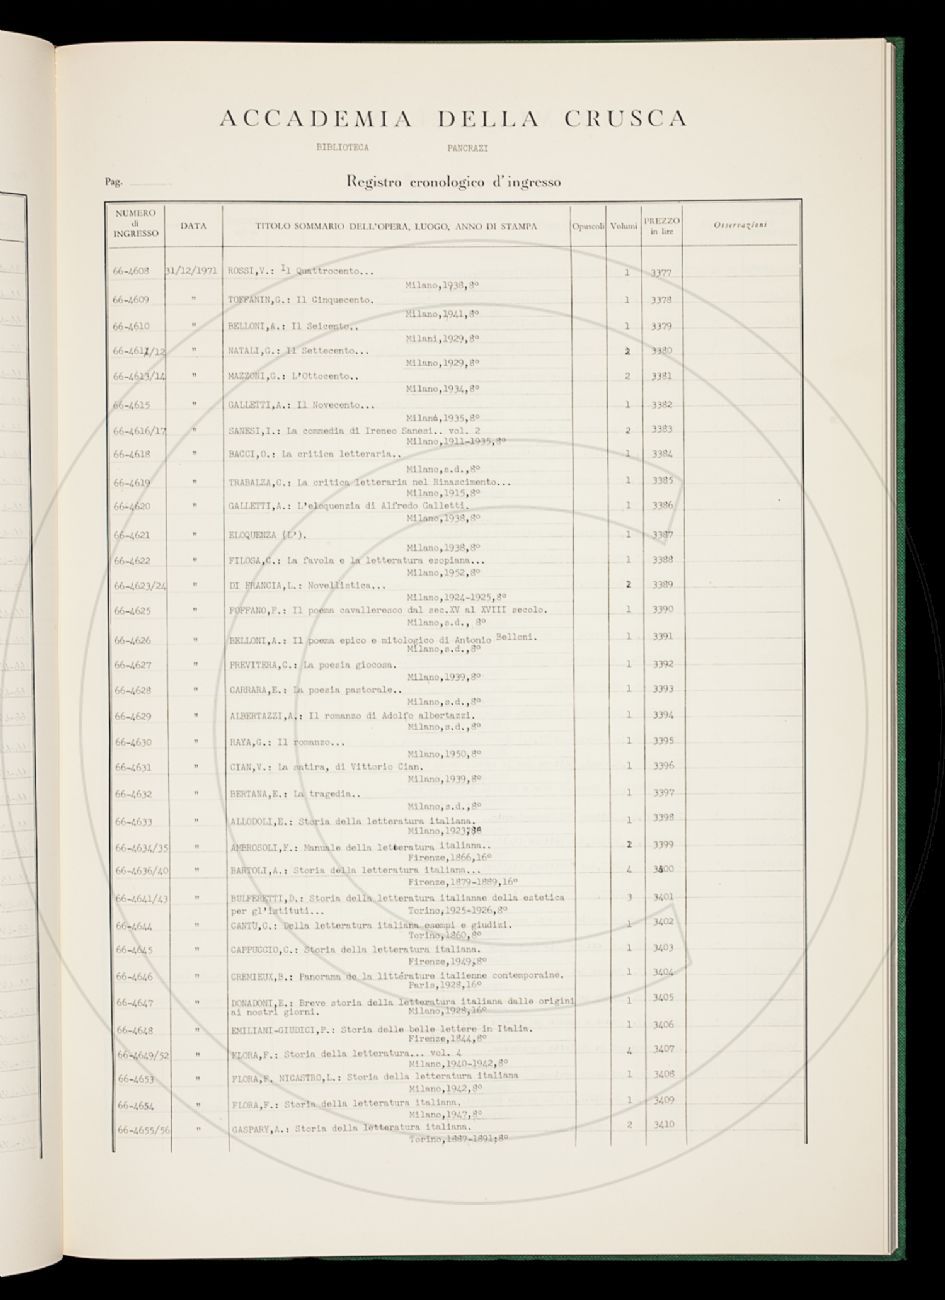 ACCADEMIA DELLA CRUSCA
BIBLIOTECA PANCRAZI
Pag.
Registro cronologico d'ingresso
NUMERO di INGRESSO DATA TITOLO SOMMARIO DELL'OPERA, LUOGO, ANNO DI STAMPA Opuscoli Volumi PREZZO in lire Osservazioni
66-4608 31/12/1971 ROSSI,V.: Il Quattrocento... 1 3377
Milano,1938,8º
66-4609 " TOFFANIN,G.: Il Cinquecento. 1 3378
Milano,1941,8º
66-4610 " BELLONI,A.: Il Seicento.. 1 3379
Milani,1929,8º
66-4611/12 " NATALI,G.: Il Settecento... 2 3380
Milano,1929,8º
66-4613/14 " MAZZONI,G.: L'Ottocento.. 2 3381
Milano,1934,8º
66-4615 " GALLETTI,A.: Il Novecento... 1 3382
Milano,1935,8º
66-4616/17 " SANESI,I.: La commedia di Ireneo Sanesi.. vol. 2 2 3383
Milano,1911-1935,8º
66-4618 " BACCI,O.: La critica letteraria.. 1 3384
Milano,s.d.,8º
66-4619 " TRABALZA,C.: La critica letteraria nel Rinascimento... 1 3385
Milano,1915,8º
66-4620 " GALLETTI,A.: L'eloquenzia di Alfredo Galletti. 1 3386
Milano,1938,8º
66-4621 " ELOQUENZA (L'). 1 3387
Milano,1938,8º
66-4622 " FILOSA,C.: La favola e la letteratura esopiana... 1 3388
Milano,1952,8º
66-4623/24 " DI FRANCIA,L.: Novellistica... 2 3389
Milano,1924-1925,8º
66-4625 " FOFFANO,F.: Il poema cavalleresco dal sec.XV al XVIII secolo. 1 3390
Milano,s.d., 8º
66-4626 " BELLONI,A.: Il poema epico e mitologico di Antonio Belloni. 1 3391
Milano,s.d.,8º
66-4627 " PREVITERA,C.: La poesia giocosa. 1 3392
Milano,1939,8º
66-4628 " CARRARA,E.: La poesia pastorale.. 1 3393
Milano,s.d.,8º
66-4629 " ALBERTAZZI,A.: Il romanzo di Adolfo albertazzi. 1 3394
Milano,s.d.,8º
66-4630 " RAYA,G.: Il romanzo... 1 3395
Milano,1950,8º
66-4631 " CIAN,V.: La satira, di Vittorio Cian. 1 3396
Milano,1939,8º
66-4632 " BERTANA,E.: La tragedia.. 1 3397
Milano,s.d.,8º
66-4633 " ALLODOLI,E.: Storia della letteratura italiana. 1 3398
Milano,1923,8º
66-4634/35 " AMBROSOLI,F.: Manuale della letteratura italiana.. 2 3399
Firenze,1866,16º
66-4636/40 " BARTOLI,A.: Storia della letteratura italiana... 4 3400
Firenze,1879-1889,16º
66-4641/43 " BULFERETTI,D.: Storia della letteratura italianae della estetica 3 3401
per gl'istituti... Torino,1925-1926,8º
66-4644 " CANTÙ,C.: Della letteratura italiana esempi e giudizi. 1 3402
Torino,1860,8º
66-4645 " CAPPUCCIO,C.: Storia della letteratura italiana. 1 3403
Firenze,1949,8º
66-4646 " CREMIEUX,B.: Panorama de la littérature italienne contemporaine. 1 3404
Paris,1928,16º
66-4647 " DONADONI,E.: Breve storia della letteratura italiana dalle origini 1 3405
ai nostri giorni. Milano,1928,16º
66-4648 " EMILIANI-GIUDICI,P.: Storia delle belle lettere in Italia. 1 3406
Firenze,1844,8º
66-4649/52 " FLORA,F.: Storia della letteratura... vol. 4 4 3407
Milano,1940-1942,8º
66-4653 " FLORA,F. NICASTRO,L.: Storia della letteratura italiana 1 3408
Milano,1942,8º
66-4654 " FLORA,F.: Storia della letteratura italiana. 1 3409
Milano,1947,8º
66-4655/56 " GASPARY,A.: Storia della letteratura italiana. 2 3410
Torino,1887-1891,8º